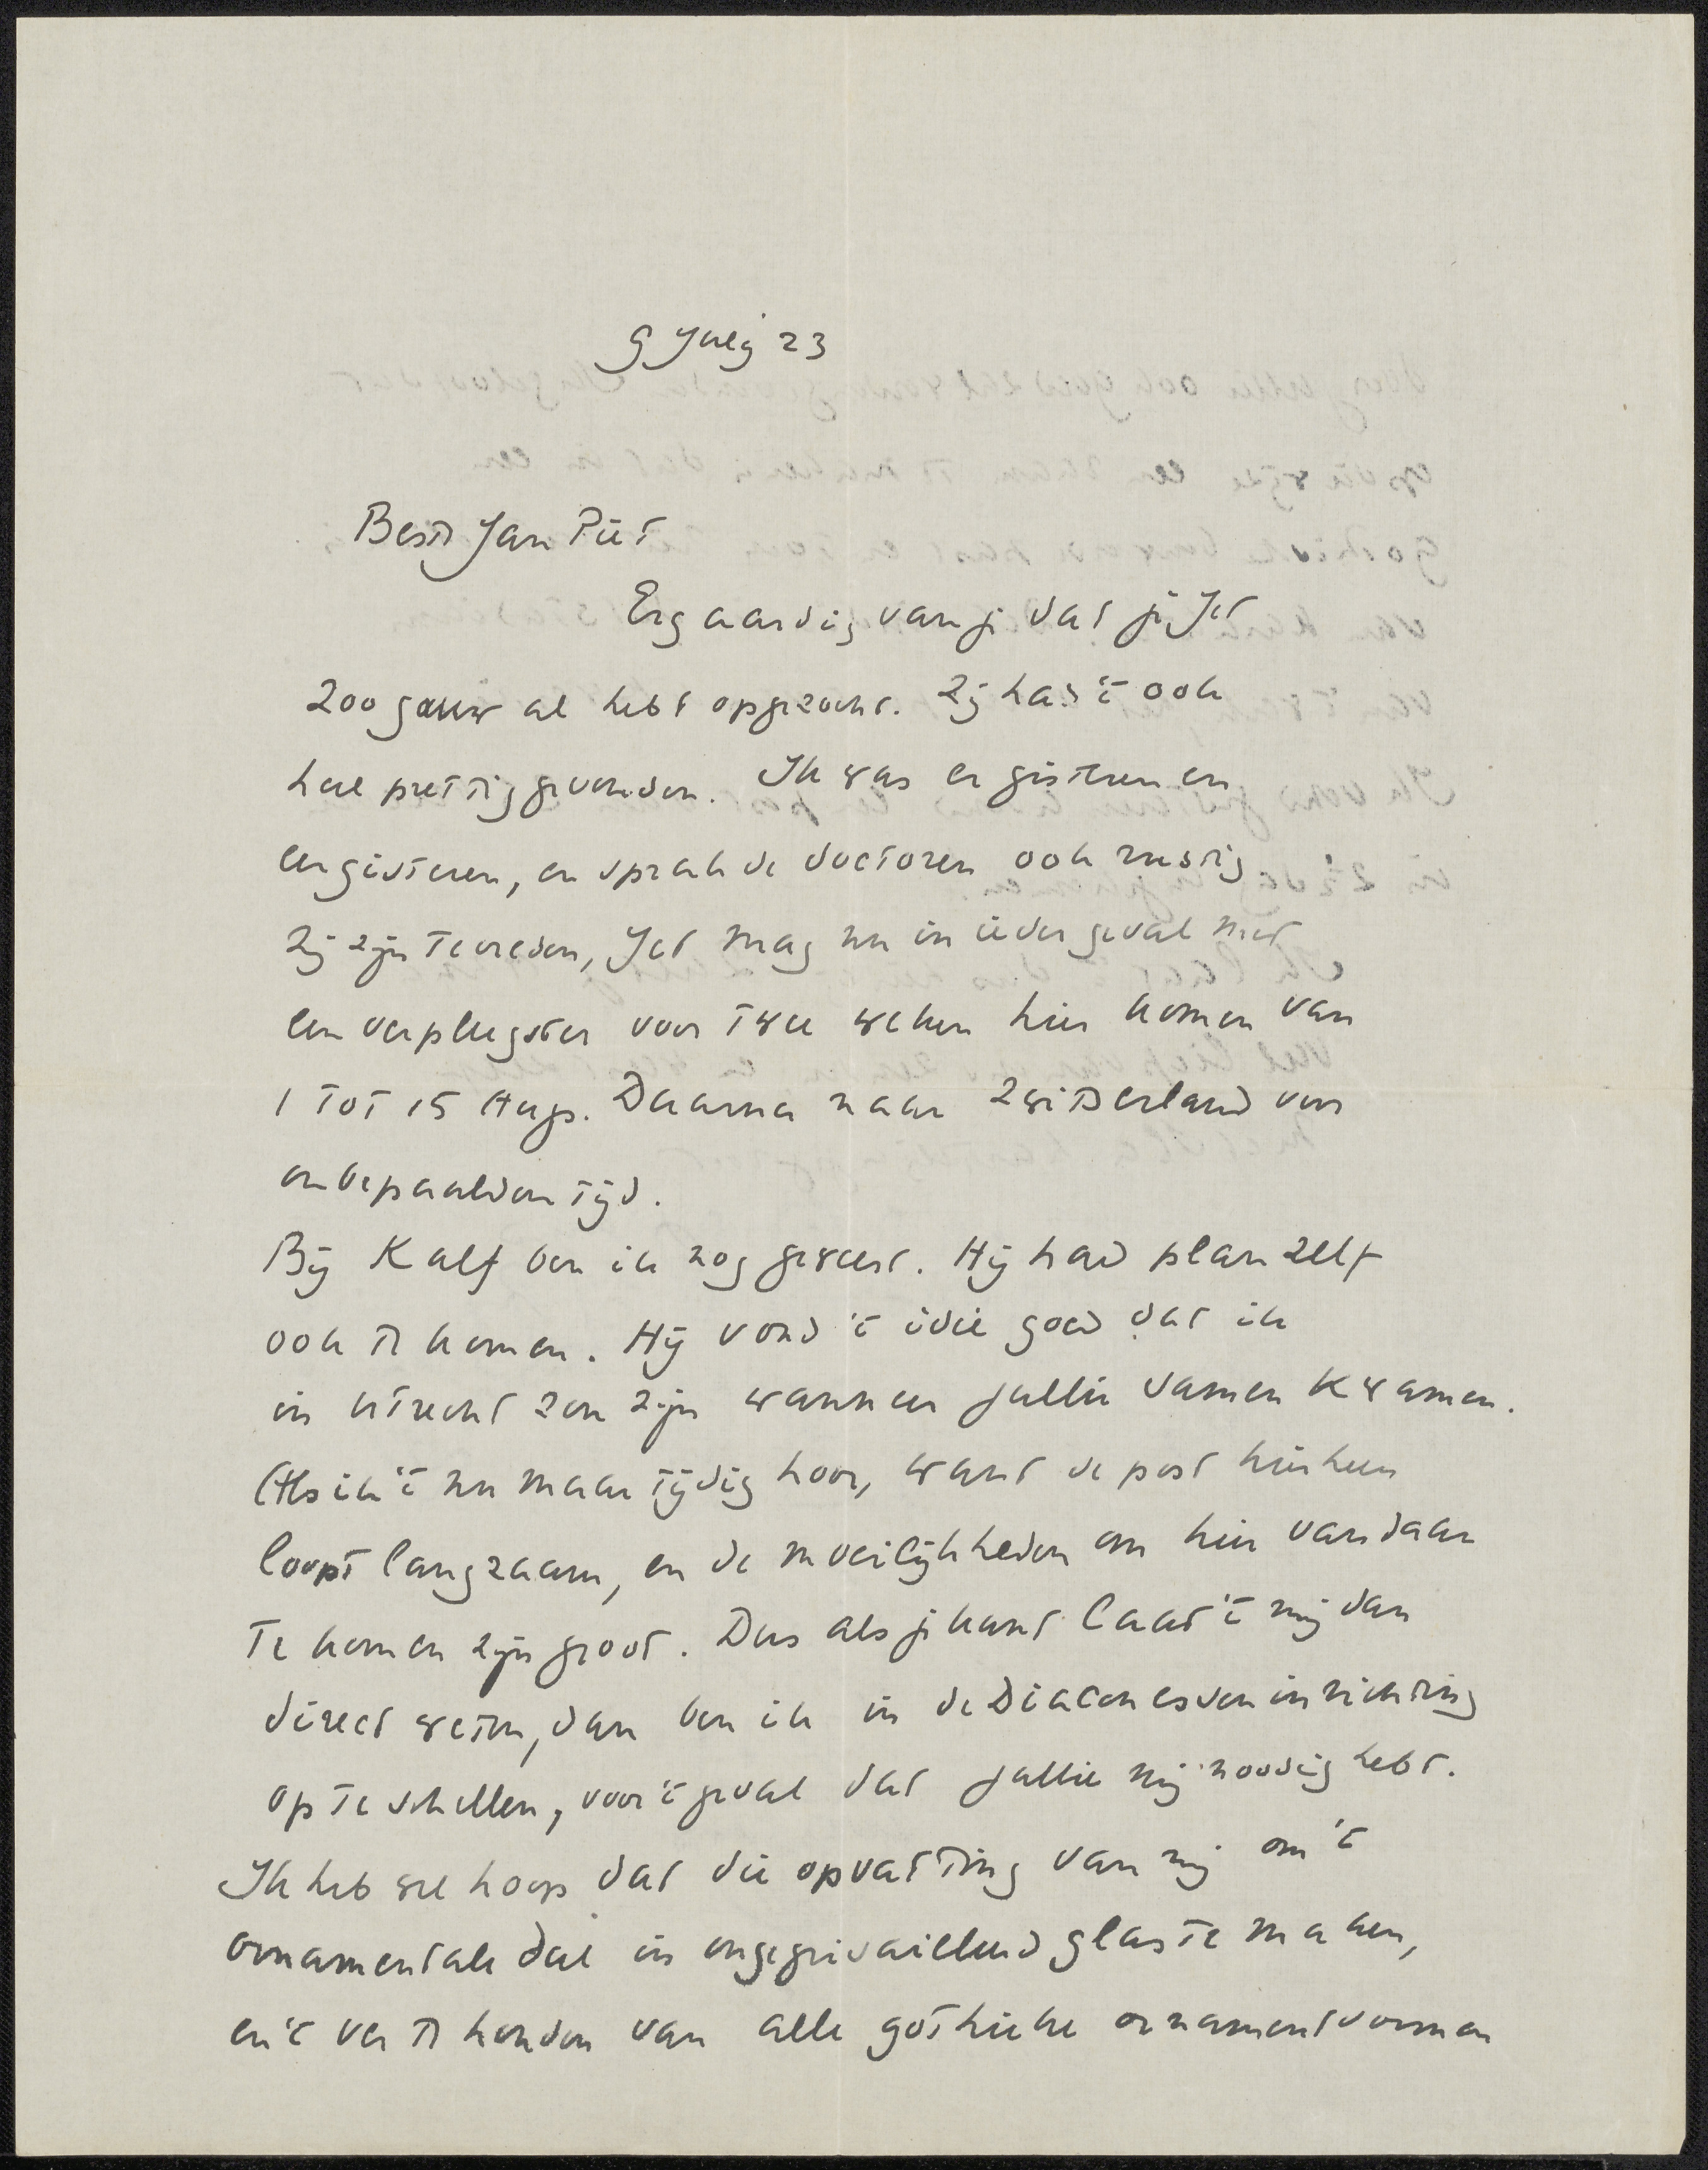 9 July 23
Beste Jan Piet
Erg aardig van je dat je Jet
zoo gauw al hebt opgezocht. Zij had 't ook
heel prettig gevonden. Ik was er gisteren en
eergisteren, en sprak de doctoren ook rustig.
Zij zijn tevreden, Jet mag nu in ieder geval met
een verpleegster voor twee weken hier komen van
1 tot 15 Aug. Daarna naar Zwitserland voor
onbepaalden tijd.
Bij Kalf ben ik nog geweest. Hij had plan zelf
ook te komen. Hij vond 't idee goed dat ik
in Utrecht zou zijn wanneer jullie samen kwamen.
Als ik 't nu maar tijdig hoor, want de post hierheen
loopt langzaam, en de moeilijkheden om hier vandaan
te komen zijn groot. Dus als je kunt laat 't mij dan
direct weten, dan ben ik in de Diaconessen inrichting
op te schellen, voor 't geval dat jullie mij noodig hebt.
Ik heb wel hoop dat die opvatting van mij om 't
ornamentale deel in ongegrivailleerd glas te maken,
en 't ver te houden van alle gothieke ornamentvormen